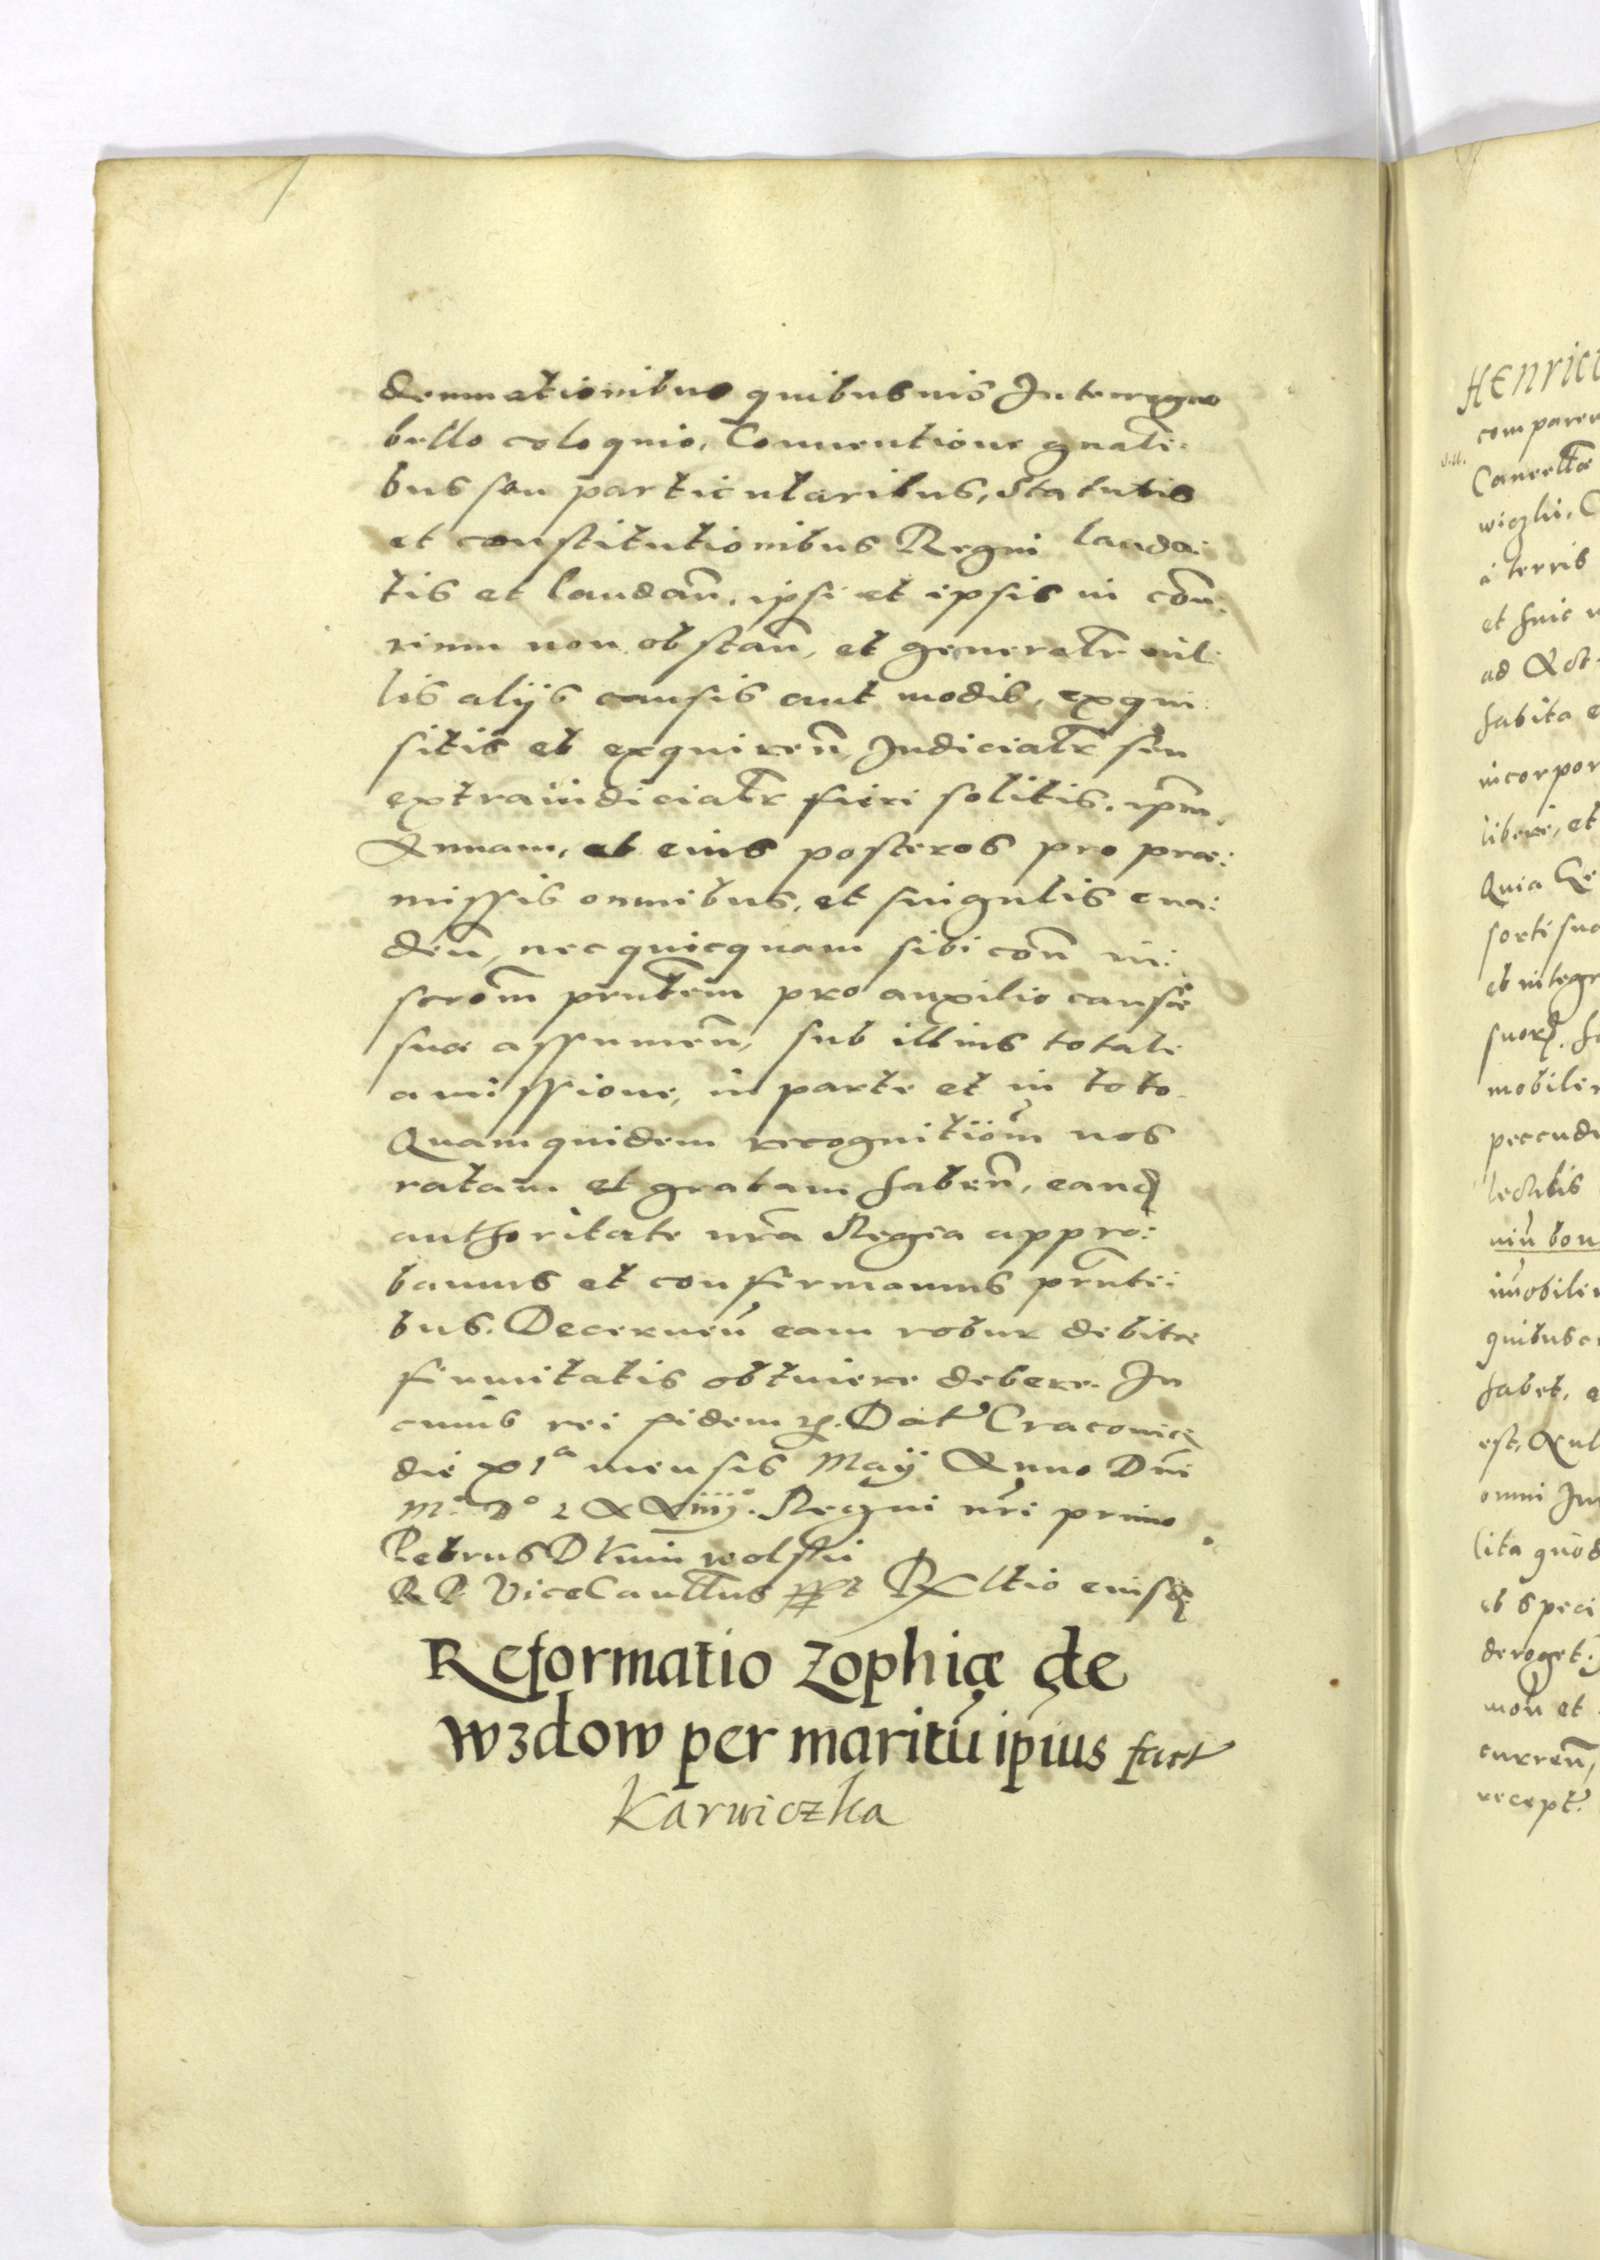 demnationibus quibusuis Interregno
bello coloquio, Conuentione gnali:
bus seu particularibus, Statutis
et constitutionibus Regni lauda:
tis et laudan̄, ipsi et ipsis in con̄:
rium non obstan̄, et generalr̄ nul:
lis alijs causis aut modis, exqui:
sitis et exquiren̄, Judicialr̄ seu
extraiudicialr̄ fieri solitis, ip̄m
Annam, et eius posteros pro præ:
missis omnibus, et singulis eua:
den̄, nec quicquam sibi con̄ in:
scrōm prn̄tem pro auxilio causæ
suæ assumen̄, sub illius totali
amissione, in parte et in toto.
Quamquidem recognitiōm nos
ratam et gratam haben̄, eand
authoritate nr̄a Regia appro:
bamus et confirmamus prn̄ti:
bus. Decernen̄ eam robur debitæ
firmitatis obtinere debere. In
cuius rei fidem Dat Cracouiæ
die XIa mensis Maij Anno Dn̄i
Mo Do LXXiiijo. Regni nr̄i primo.
Petrus Dunin Wolski
R P. ViceCancellus sspt Rltio eiusd
Reformatio Zophiæ de
Wzdow per maritū ip̄ius fact
Karwiczka
HENRIC
comparen
Cancellæ
wiczki, C
à terris
et huic
ad Act
habita e
incorpor
libere, et
Quia
sorti sua
et integr
suor
mobile
peccudi
lectilis
niū bon
im̄obile
quibusc
habet, e
est,
omni Ju
lita quòd
et speci
deroget.
mon̄ et
curren̄,
recept.